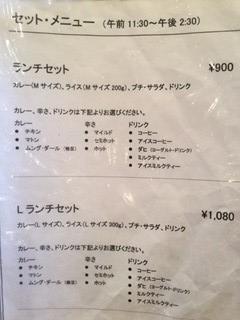 セット・メニュー (午前 11:30～午後 2:30)
ランチセット ¥900
カレー(Mサイズ)、ライス(Mサイズ 200g)、プチ・サラダ、ドリンク
カレー、辛さ、ドリンクは下記よりお選びください。
カレー 辛さ ドリンク
● チキン ● マイルド ● コーヒー
● マトン ● セミホット ● アイスコーヒー
● ムング・ダール(緑豆) ● ホット ● ダヒ(ヨーグルト・ドリンク)
● ミルクティー
● アイスミルクティー
Lランチセット ¥1,080
カレー(Lサイズ)、ライス(Lサイズ 300g)、プチ・サラダ、ドリンク
カレー、辛さ、ドリンクは下記よりお選びください。
カレー 辛さ ドリンク
● チキン ● マイルド ● コーヒー
● マトン ● セミホット ● アイスコーヒー
● ムング・ダール(緑豆) ● ホット ● ダヒ(ヨーグルト・ドリンク)
● ミルクティー
● アイスミルクティー